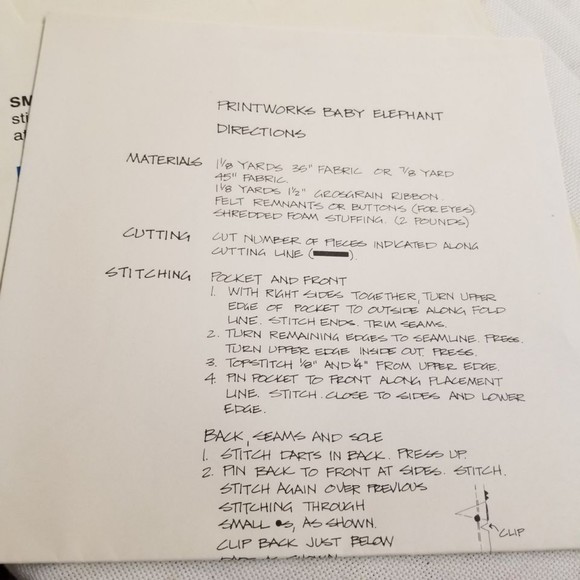 SM
sti
at
PRINTWORKS BABY ELEPHANT
DIRECTIONS
MATERIALS 1 1/8 YARDS 36" FABRIC OR 7/8 YARD
45" FABRIC.
1 1/8 YARDS 1 1/2" GROSGRAIN RIBBON.
FELT REMNANTS OR BUTTONS (FOR EYES)
SHREDDED FOAM STUFFING. (2 POUNDS)
CUTTING CUT NUMBER OF PIECES INDICATED ALONG
CUTTING LINE ( ).
STITCHING POCKET AND FRONT
1. WITH RIGHT SIDES TOGETHER, TURN UPPER
EDGE OF POCKET TO OUTSIDE ALONG FOLD
LINE. STITCH ENDS. TRIM SEAMS.
2. TURN REMAINING EDGES TO SEAMLINE. PRESS.
TURN UPPER EDGE INSIDE OUT. PRESS.
3. TOPSTITCH 1/8" AND 1/4" FROM UPPER EDGE.
4. PIN POCKET TO FRONT ALONG PLACEMENT
LINE. STITCH CLOSE TO SIDES AND LOWER
EDGE.
BACK, SEAMS AND SOLE
1. STITCH DARTS IN BACK. PRESS UP.
2. PIN BACK TO FRONT AT SIDES. STITCH.
STITCH AGAIN OVER PREVIOUS
STITCHING THROUGH
SMALL ●S, AS SHOWN.
CLIP BACK JUST BELOW
CLIP